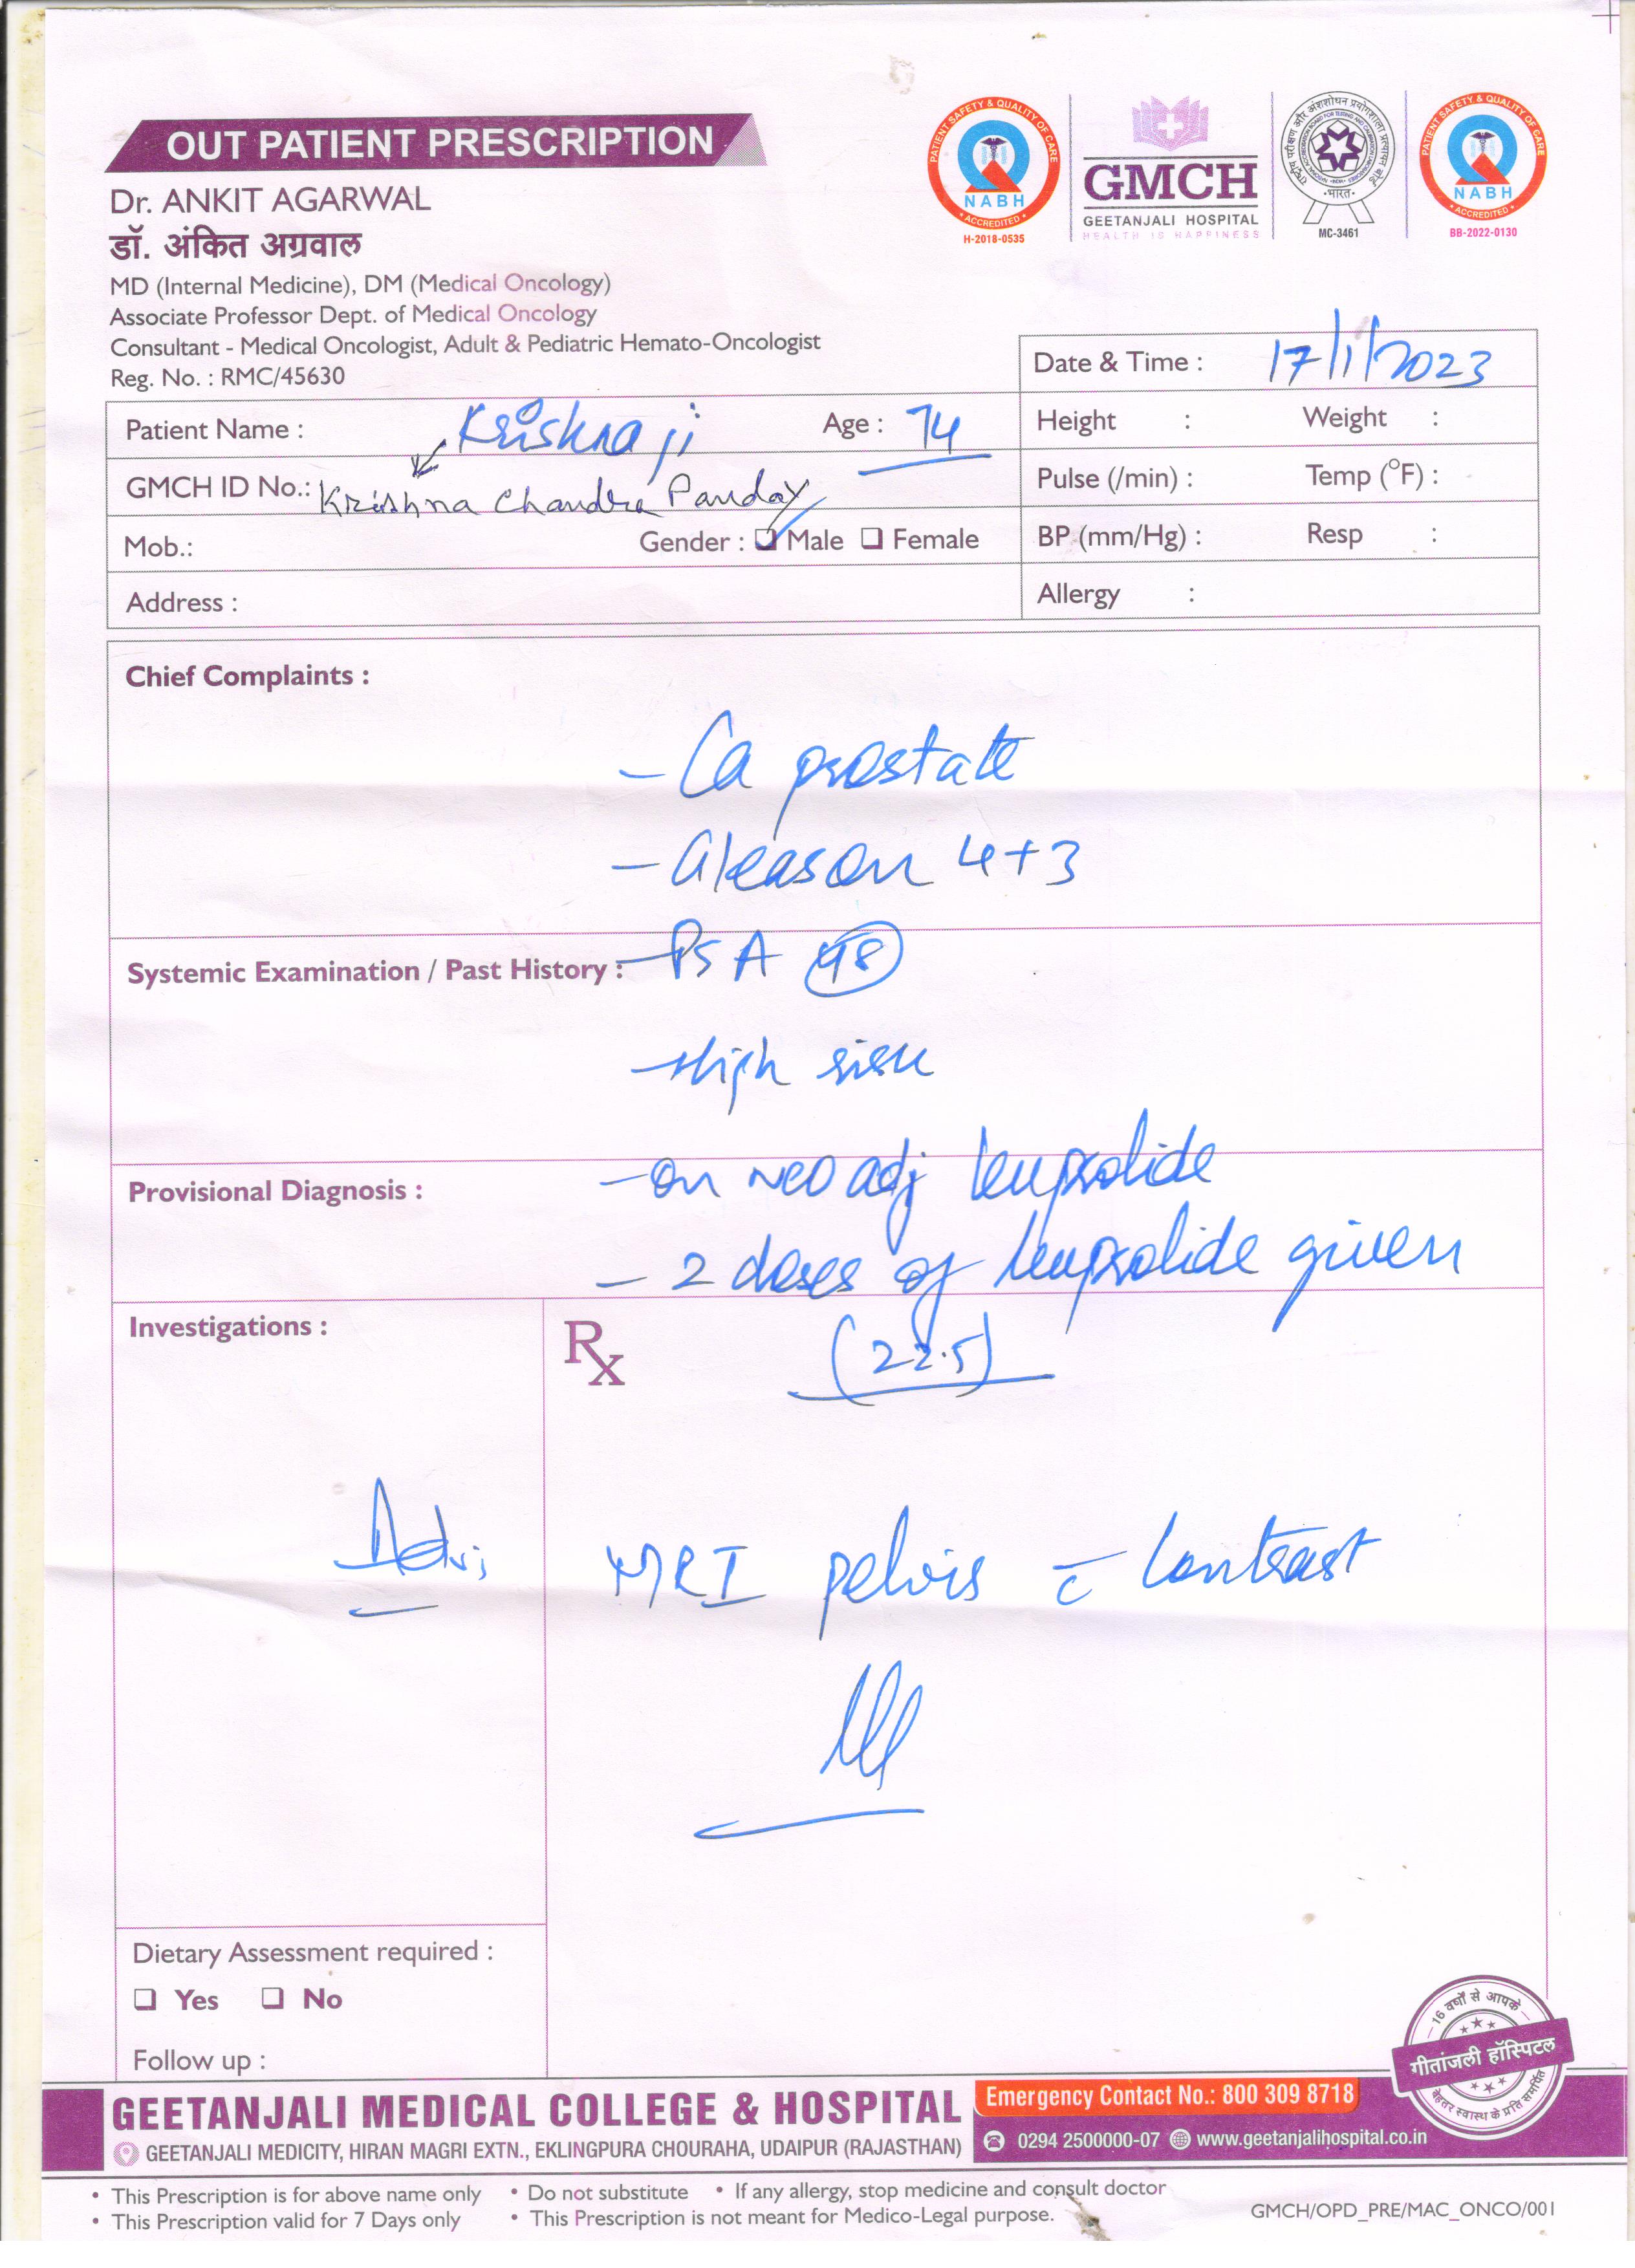 OUT PATIENT PRESCRIPTION
Dr. ANKIT AGARWAL
डॉ. अंकित अग्रवाल
MD (Internal Medicine), DM (Medical Oncology)
Associate Professor Dept. of Medical Oncology
Consultant - Medical Oncologist, Adult & Pediatric Hemato-Oncologist
Reg. No. : RMC/45630
PATIENT SAFETY & QUALITY OF CARE
NABH
ACCREDITED
H-2018-0535
GMCH
GEETANJALI HOSPITAL
HEALTH IS HAPPINESS
भारत
MC-3461
PATIENT SAFETY & QUALITY OF CARE
NABH
ACCREDITED
BB-2022-0130
Date & Time : 17/1/2023
Patient Name : Krishna ji Age : 74
Height : Weight :
GMCH ID No.: Krishna Chandra Panday
Pulse (/min) : Temp (°F) :
Mob.: Gender : Male Female
BP (mm/Hg) : Resp :
Address :
Allergy :
Chief Complaints :
- Ca prostate
- Gleason 4+3
Systemic Examination / Past History : - PSA
- High risk
Provisional Diagnosis : - on neo adj leuprolide
- 2 doses of leuprolide given
Investigations : Rx (22.5)
Adv: MRI pelvis c̄ contrast
Dietary Assessment required :
Yes No
Follow up :
16 वर्षों से आपके
गीतांजली हॉस्पिटल
बेहतर स्वास्थ के प्रति समर्पित
GEETANJALI MEDICAL COLLEGE & HOSPITAL
Emergency Contact No.: 800 309 8718
GEETANJALI MEDICITY, HIRAN MAGRI EXTN., EKLINGPURA CHOURAHA, UDAIPUR (RAJASTHAN)
0294 2500000-07 www.geetanjalihospital.co.in
• This Prescription is for above name only • Do not substitute • If any allergy, stop medicine and consult doctor
• This Prescription valid for 7 Days only • This Prescription is not meant for Medico-Legal purpose.
GMCH/OPD_PRE/MAC_ONCO/001